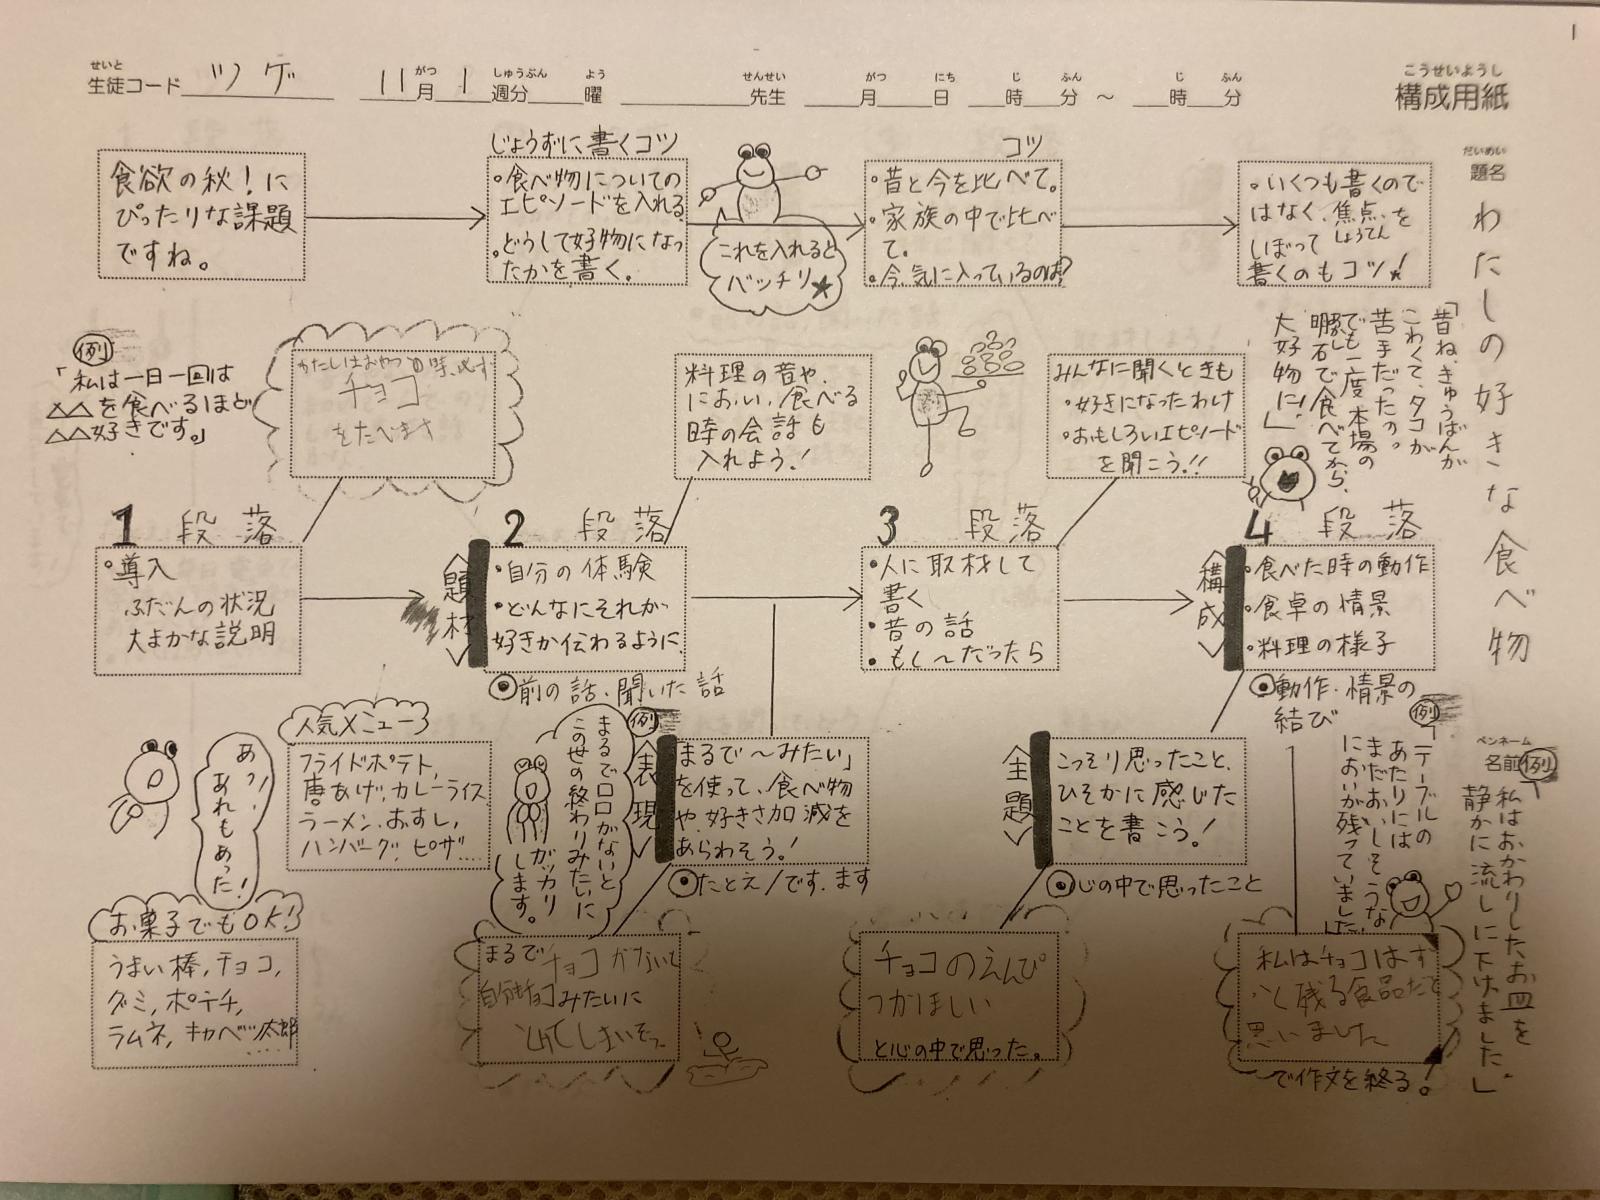 1
せいと がつ しゅうぶん よう せんせい がつ にち じ ふん じ ふん
生徒コード ツゲ 11月 1週分 曜 先生 月 日 時 分 ～ 時 分
こうせいようし
構成用紙
だいめい
題名
わたしの好きな食べ物
食欲の秋！に
ぴったりな課題
ですね。
じょうずに書くコツ
・食べ物についての
エピソードを入れる
・どうして好物になっ
たかを書く。
これを入れると
バッチリ★
コツ
・昔と今を比べて。
・家族の中で比べ
て。
・今、気に入っているのは?
・いくつも書くので
はなく、焦点を
しょうてん
しぼって
書くのもコツ！
例
「私は一日一回は
△△を食べるほど
△△好きです。」
わたしはおやつの時、必ず
チョコ
をたべます
料理の音や、
におい、食べる
時の会話も
入れよう！
みんなに聞くときも
・好きになったわけ
・おもしろいエピソード
を聞こう!!
「昔ね、きゅうばんが
こわくて、タコが
苦手だったの。
でも一度本場の
明石で食べてから、
大好物に！」
1 段落
・導入
ふだんの状況
大まかな説明
2 段落
＜題材＞
・自分の体験
・どんなにそれが
好きか伝わるように
◉前の話・聞いた話
3 段落
・人に取材して
書く
・昔の話
・もし～だったら
4 段落
＜構成＞
・食べた時の動作
・食卓の情景
・料理の様子
◉動作・情景の
結び
あっ！
あれもあった！
人気メニュー
フライドポテト、
唐あげ、カレーライス
ラーメン、おすし、
ハンバーグ、ピザ…
お菓子でもOK！
うまい棒, チョコ,
グミ, ポテチ,
ラムネ, キャベツ太郎
……
例
まるで口口がないと
この世の終わりみたいに
ガッカリ
します。
＜表現＞
まるで～みたい」
を使って、食べ物
や、好きさ加減を
あらわそう！
◉たとえ/です、ます
まるでチョコがないと
自分もチョコみたいに
とけてしまいそう
＜主題＞
こっそり思ったこと、
ひそかに感じた
ことを書こう！
◉心の中で思ったこと
チョコのえんぴ
つがほしい
と心の中で思った。
例
「テーブルの
あたりには
まだおいしそうな
においが残っていました」
私はチョコはす
ごく残る食品だと
思いました
で作文を終る！
ペンネーム
名前
例
「私はおかわりしたお皿を
静かに流しに下げました。」